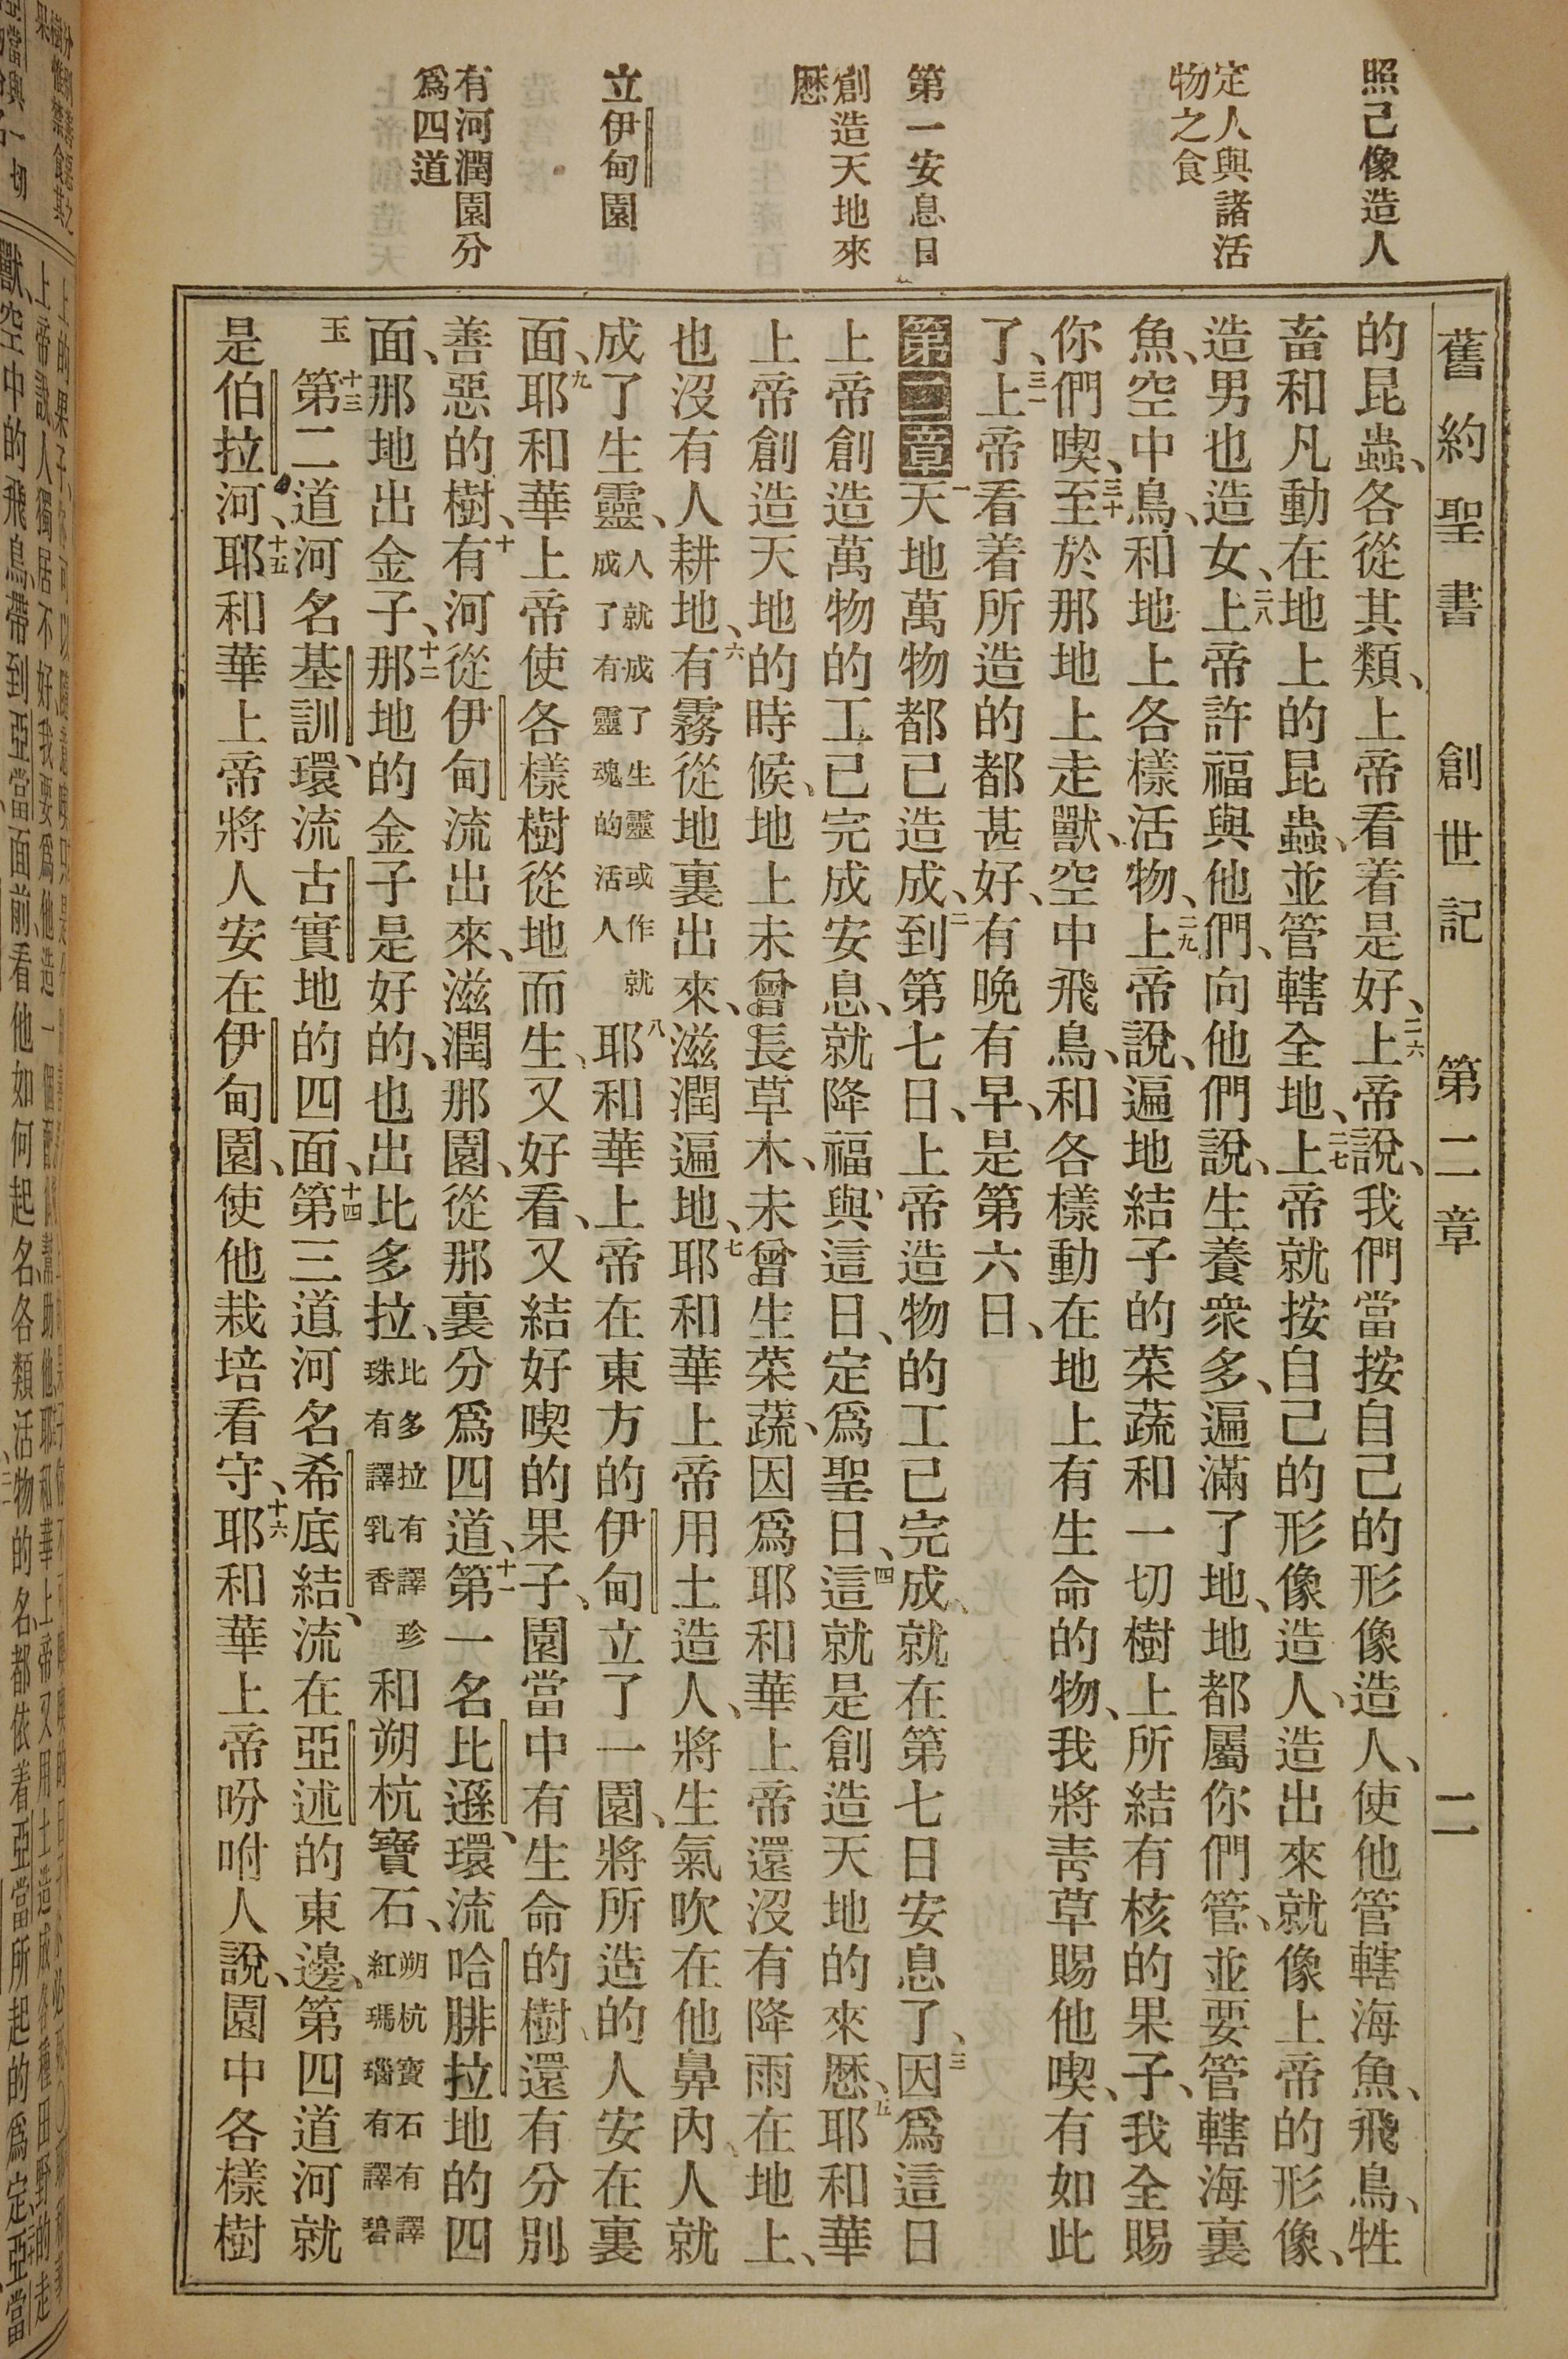 照己像造人
定人與諸活
物之食
第一安息日
創造天地來
歷
立伊甸園
有河潤園分
爲四道
舊約聖書 創世記 第二章 二
的昆蟲、各從其類、上帝看着是好、二六上帝說、我們當按自己的形像造人、使他管轄海魚、飛鳥、牲
畜和凡動在地上的昆蟲、並管轄全地、二七上帝就按自己的形像造人、造出來就像上帝的形像、
造男也造女、二八上帝許福與他們、向他們說、生養衆多、遍滿了地、地都屬你們管、並要管轄海裏
魚、空中鳥、和地上各樣活物、二九上帝說、遍地結子的菜蔬和一切樹上所結有核的果子、我全賜
你們喫、三十至於那地上走獸、空中飛鳥、和各樣動在地上有生命的物、我將靑草賜他喫、有如此
了、三一上帝看着所造的都甚好、有晚有早、是第六日、
第二章一天地萬物都已造成、二到第七日、上帝造物的工已完成、就在第七日安息了、三因爲這日
上帝創造萬物的工已完成安息、就降福與這日、定爲聖日、四這就是創造天地的來歷、五耶和華
上帝創造天地的時候、地上未曾長草木、未曾生菜蔬、因爲耶和華上帝還沒有降雨在地上、
也沒有人耕地、六有霧從地裏出來、滋潤遍地、七耶和華上帝用土造人、將生氣吹在他鼻內、人就
成了生靈、人就成了生靈或作就成了有靈魂的活人八耶和華上帝在東方的伊甸立了一園、將所造的人安在裏
面、九耶和華上帝使各樣樹從地而生、又好看、又結好喫的果子、園當中有生命的樹、還有分別
善惡的樹、十有河從伊甸流出來、滋潤那園、從那裏分爲四道、十一第一名比遜、環流哈腓拉地的四
面、那地出金子、十二那地的金子是好的、也出比多拉、比多拉有譯珍珠有譯乳香和朔杭寶石、朔杭寶石有譯紅瑪瑙有譯碧
玉十三第二道河名基訓、環流古實地的四面、十四第三道河名希底結、流在亞述的東邊、第四道河就
是伯拉河、十五耶和華上帝將人安在伊甸園、使他栽培看守、十六耶和華上帝吩咐人說、園中各樣樹
獸、空中的飛鳥、帶到亞當面前、看他如何起名、各類活物的名、都依着亞當所起的爲定、亞當